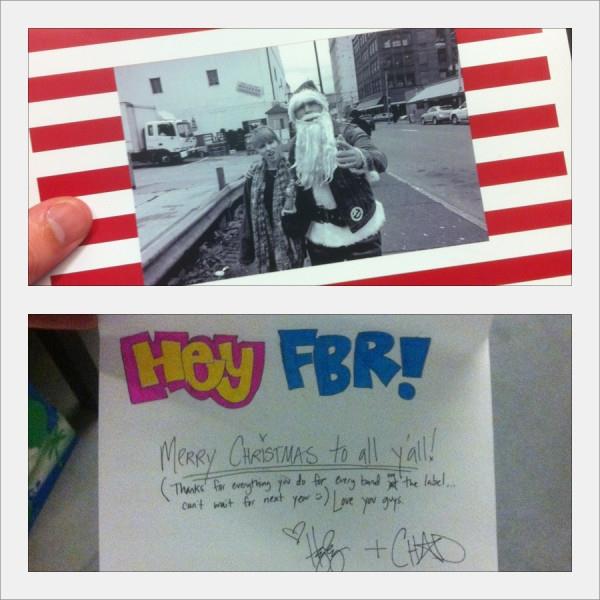 Hey FBR!
Merry Christmas to all y'all!
(Thanks for everything you do for every band on the label...
can't wait for next year :) Love you guys.
+ CHAD